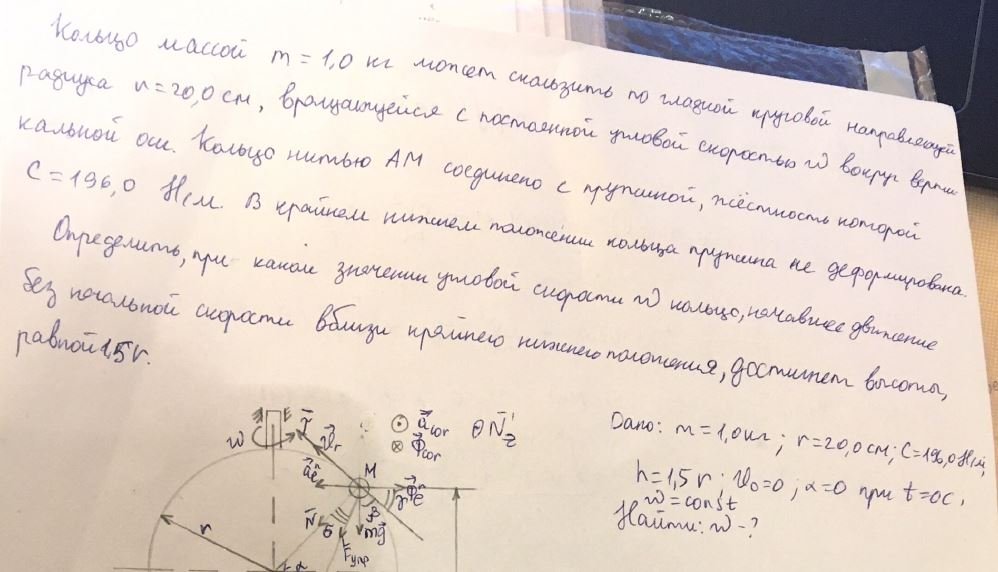 Кольцо массой m = 1,0 кг может скользить по гладкой круговой направляющей
радиуса r = 20,0 см, вращающейся с постоянной угловой скоростью ω вокруг верти-
кальной оси. Кольцо нитью АМ соединено с пружиной, жёсткость которой
C = 196,0 Н/м. В крайнем нижнем положении кольца пружина не деформирована.
Определить, при каком значении угловой скорости ω кольцо, начавшее движение
без начальной скорости вблизи крайнего нижнего положения, достигнет высоты,
равной 1,5 r.
Дано: m = 1,0 кг ; r = 20,0 см ; C = 196,0 Н/м,
h = 1,5 r ; V₀ = 0 ; α = 0 при t = 0 c,
ω = const
Найти: ω - ?
ω τ⃗ v⃗r a⃗cor N⃗'z
Φ⃗cor
a⃗e M Φ⃗e γ
r N⃗ β mg⃗
F⃗упр
α